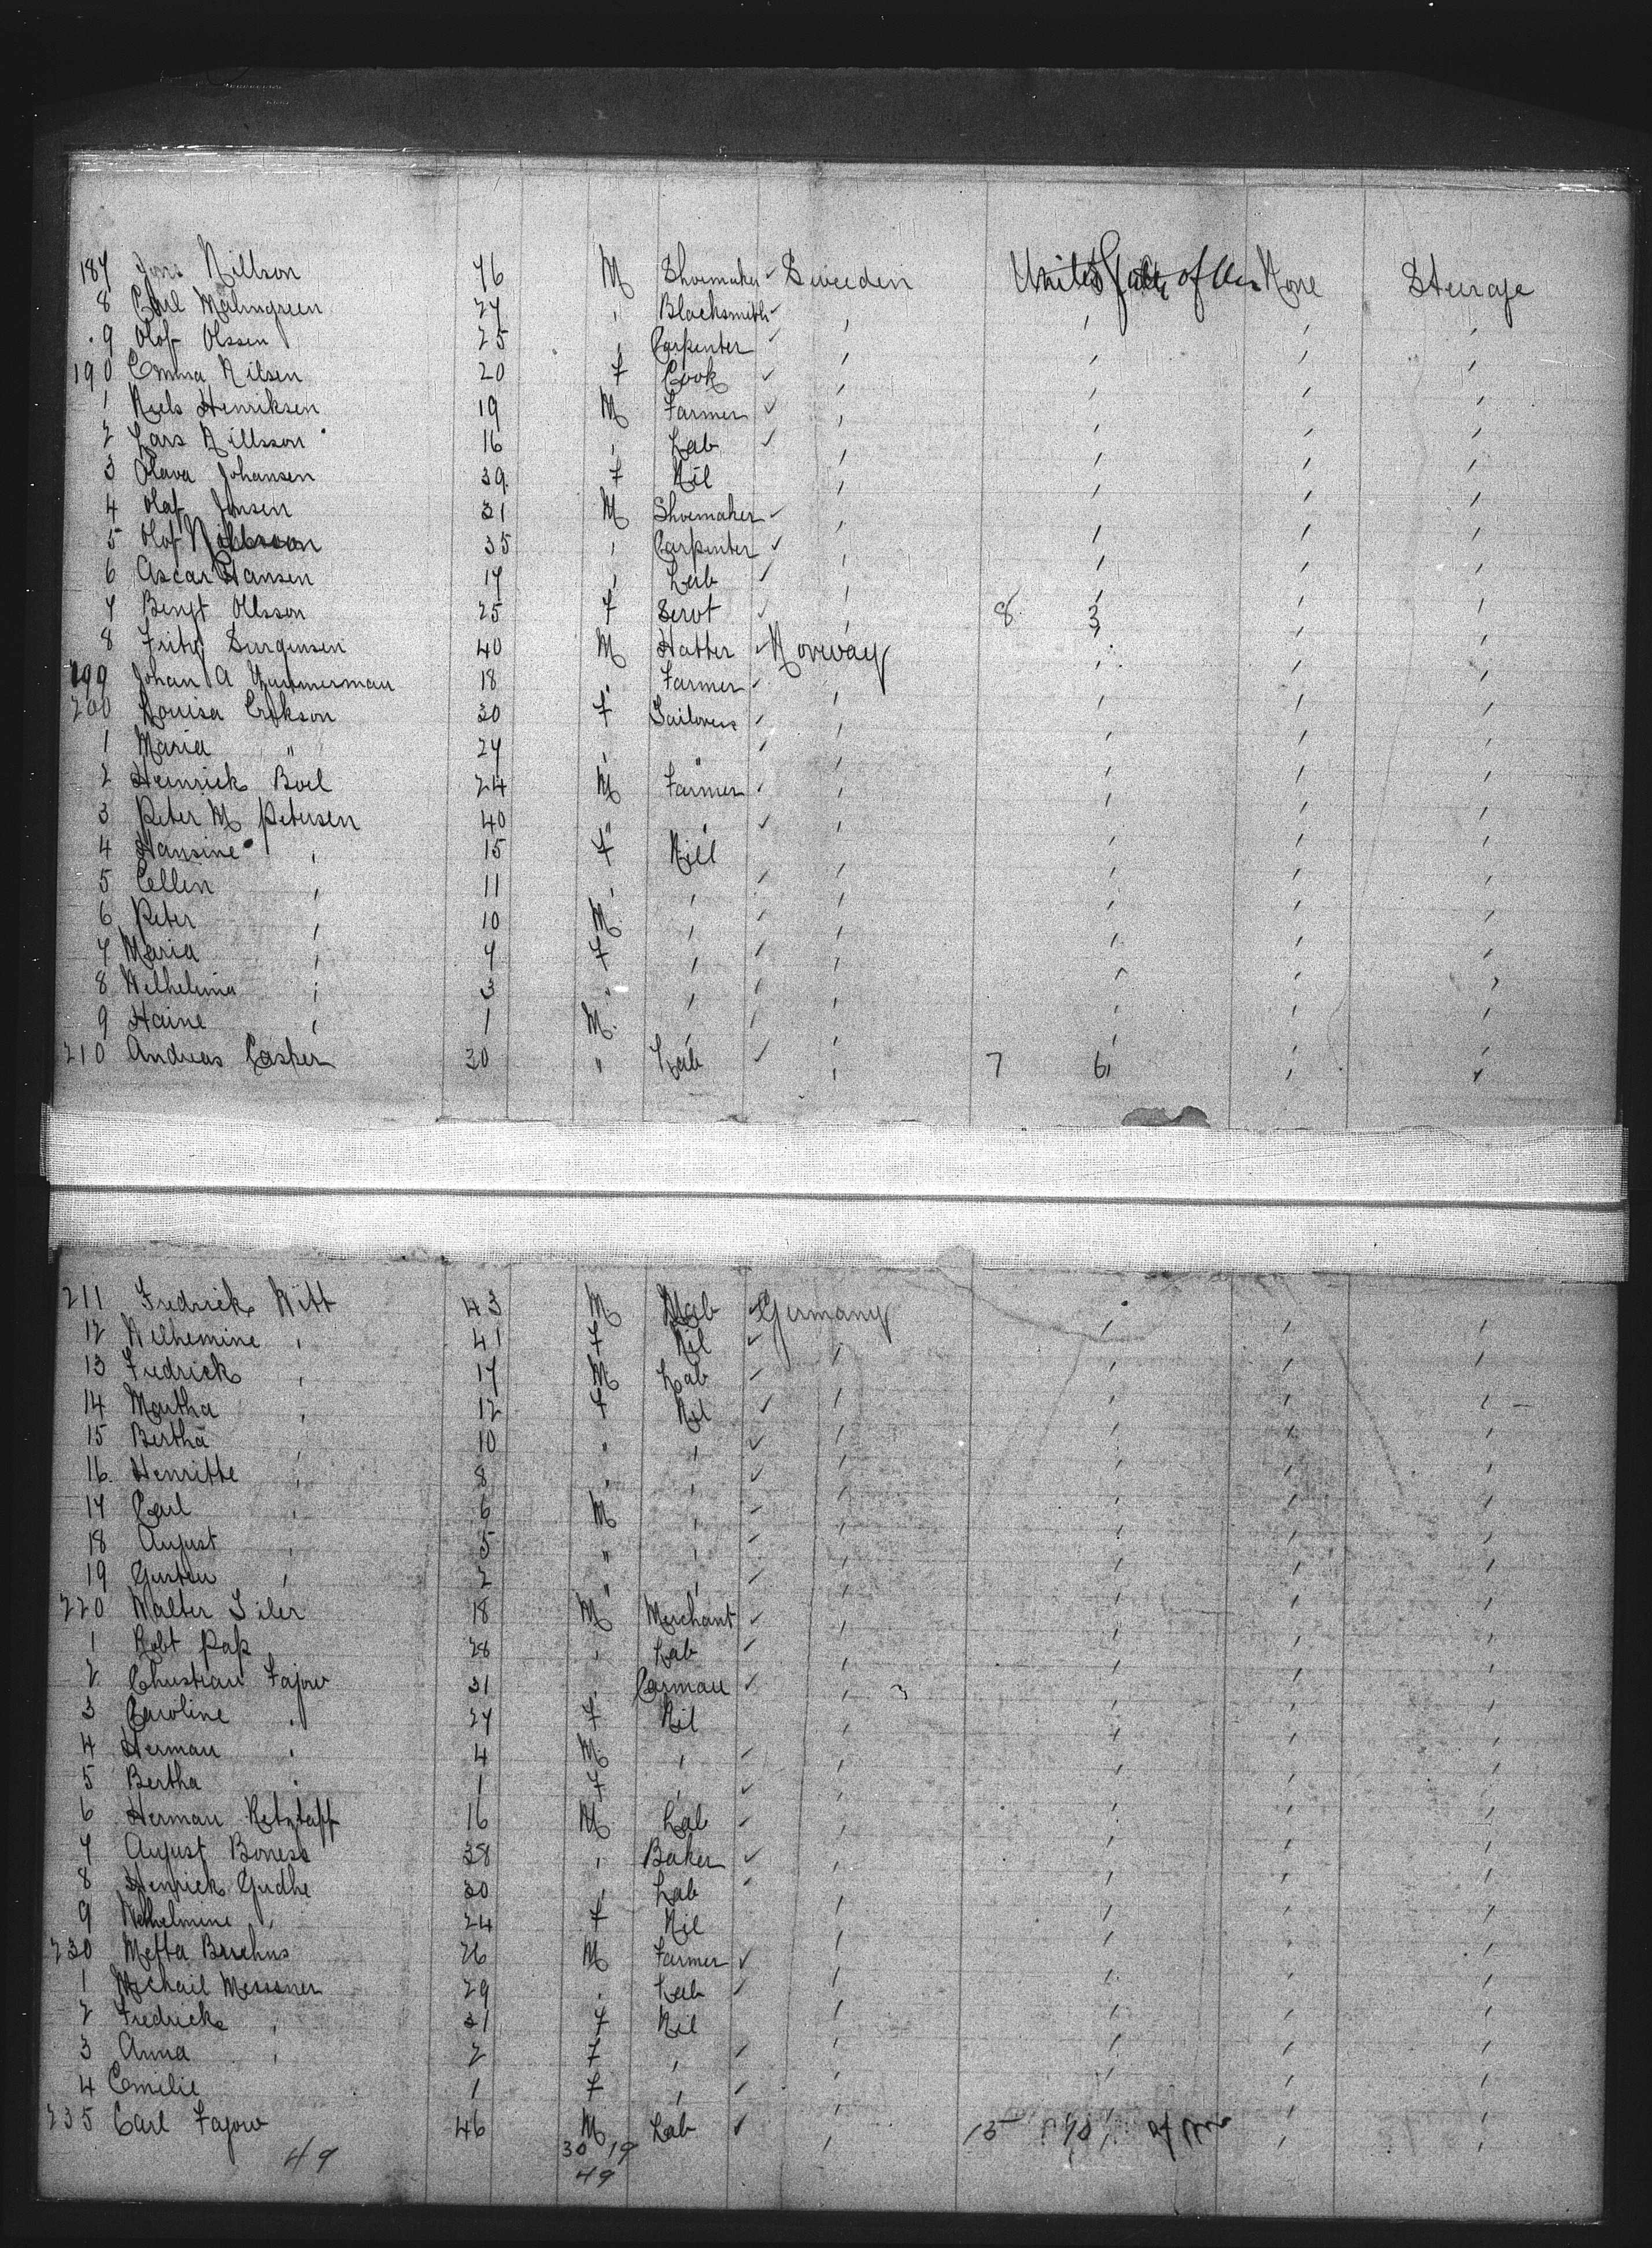 187 Jöns Nillson 46 M Shoemaker Sweeden United States of Am None Steerage
8 Carl Malmgreen 27 " Blacksmith " " " "
9 Olof Olssen 25 " Carpenter " " " "
190 Emma Nilsen 20 F Cook " " " "
1 Niels Henriksen 19 M Farmer " " " "
2 Lars Nillsson 16 " Lab " " " "
3 Olava Johansen 39 F Nil " " " "
4 Olaf Jensen 31 M Shoemaker " " " "
5 Olof 35 " Carpenter " " " "
6 Ascar Hansen 17 " Lab " " " "
7 Bengt Ollsson 25 F Servt " 8 3 " "
8 40 M Hatter Norway " " "
199 Johan A 18 " Farmer " " " "
200 Louisa Erikson 30 F Tailoress " " " "
1 Maria " 27 " " " " " "
2 Heinrick Boel 24 M Farmer " " " "
3 Peter M Petersen 40 " " " " " "
4 Hansine " 15 F Nill " " " "
5 Cellin " 11 " " " " " "
6 Peter " 10 M " " " " "
7 Maria " 7 F " " " " "
8 Wilhelmina " 3 " " " " " "
9 Haine " 1 M " " " " "
210 Andreas Casper 30 " Lab " 7 6 " "
211 Fredrick Witt 43 M Lab Germany " " "
12 Wilhemine " 41 F Nil " " " "
13 Fredrick " 17 M Lab " " " "
14 Martha " 12 F Nil " " " "
15 Bertha " 10 " " " " " "
16 Henritte " 8 " " " " " "
17 Carl " 6 M " " " " "
18 August " 5 " " " " " "
19 Gustav " 2 " " " " " "
220 Walter Siler 18 M Merchant " " " "
1 Robt Pap 28 " Lab " " " "
2 Christian Fajow 31 " Carman " " " "
3 Caroline " 27 F Nil " " " "
4 Herman " 4 M " " " " "
5 Bertha " 1 F " " " " "
6 Herman Retzlaff 16 M Lab " " " "
7 August Boness 38 " Baker " " " "
8 Henrick Gudhe 30 " Lab " " " "
9 Wilhelmine " 24 F Nil " " " "
230 Metta 26 M Farmer " " " "
1 Michail Messner 29 " Lab " " " "
2 Fredricke " 31 F Nil " " " "
3 Anna " 2 F " " " " "
4 Emilie 1 F " " " " "
235 Carl Fagow 46 M Lab " 15 " "
49 30 19
49